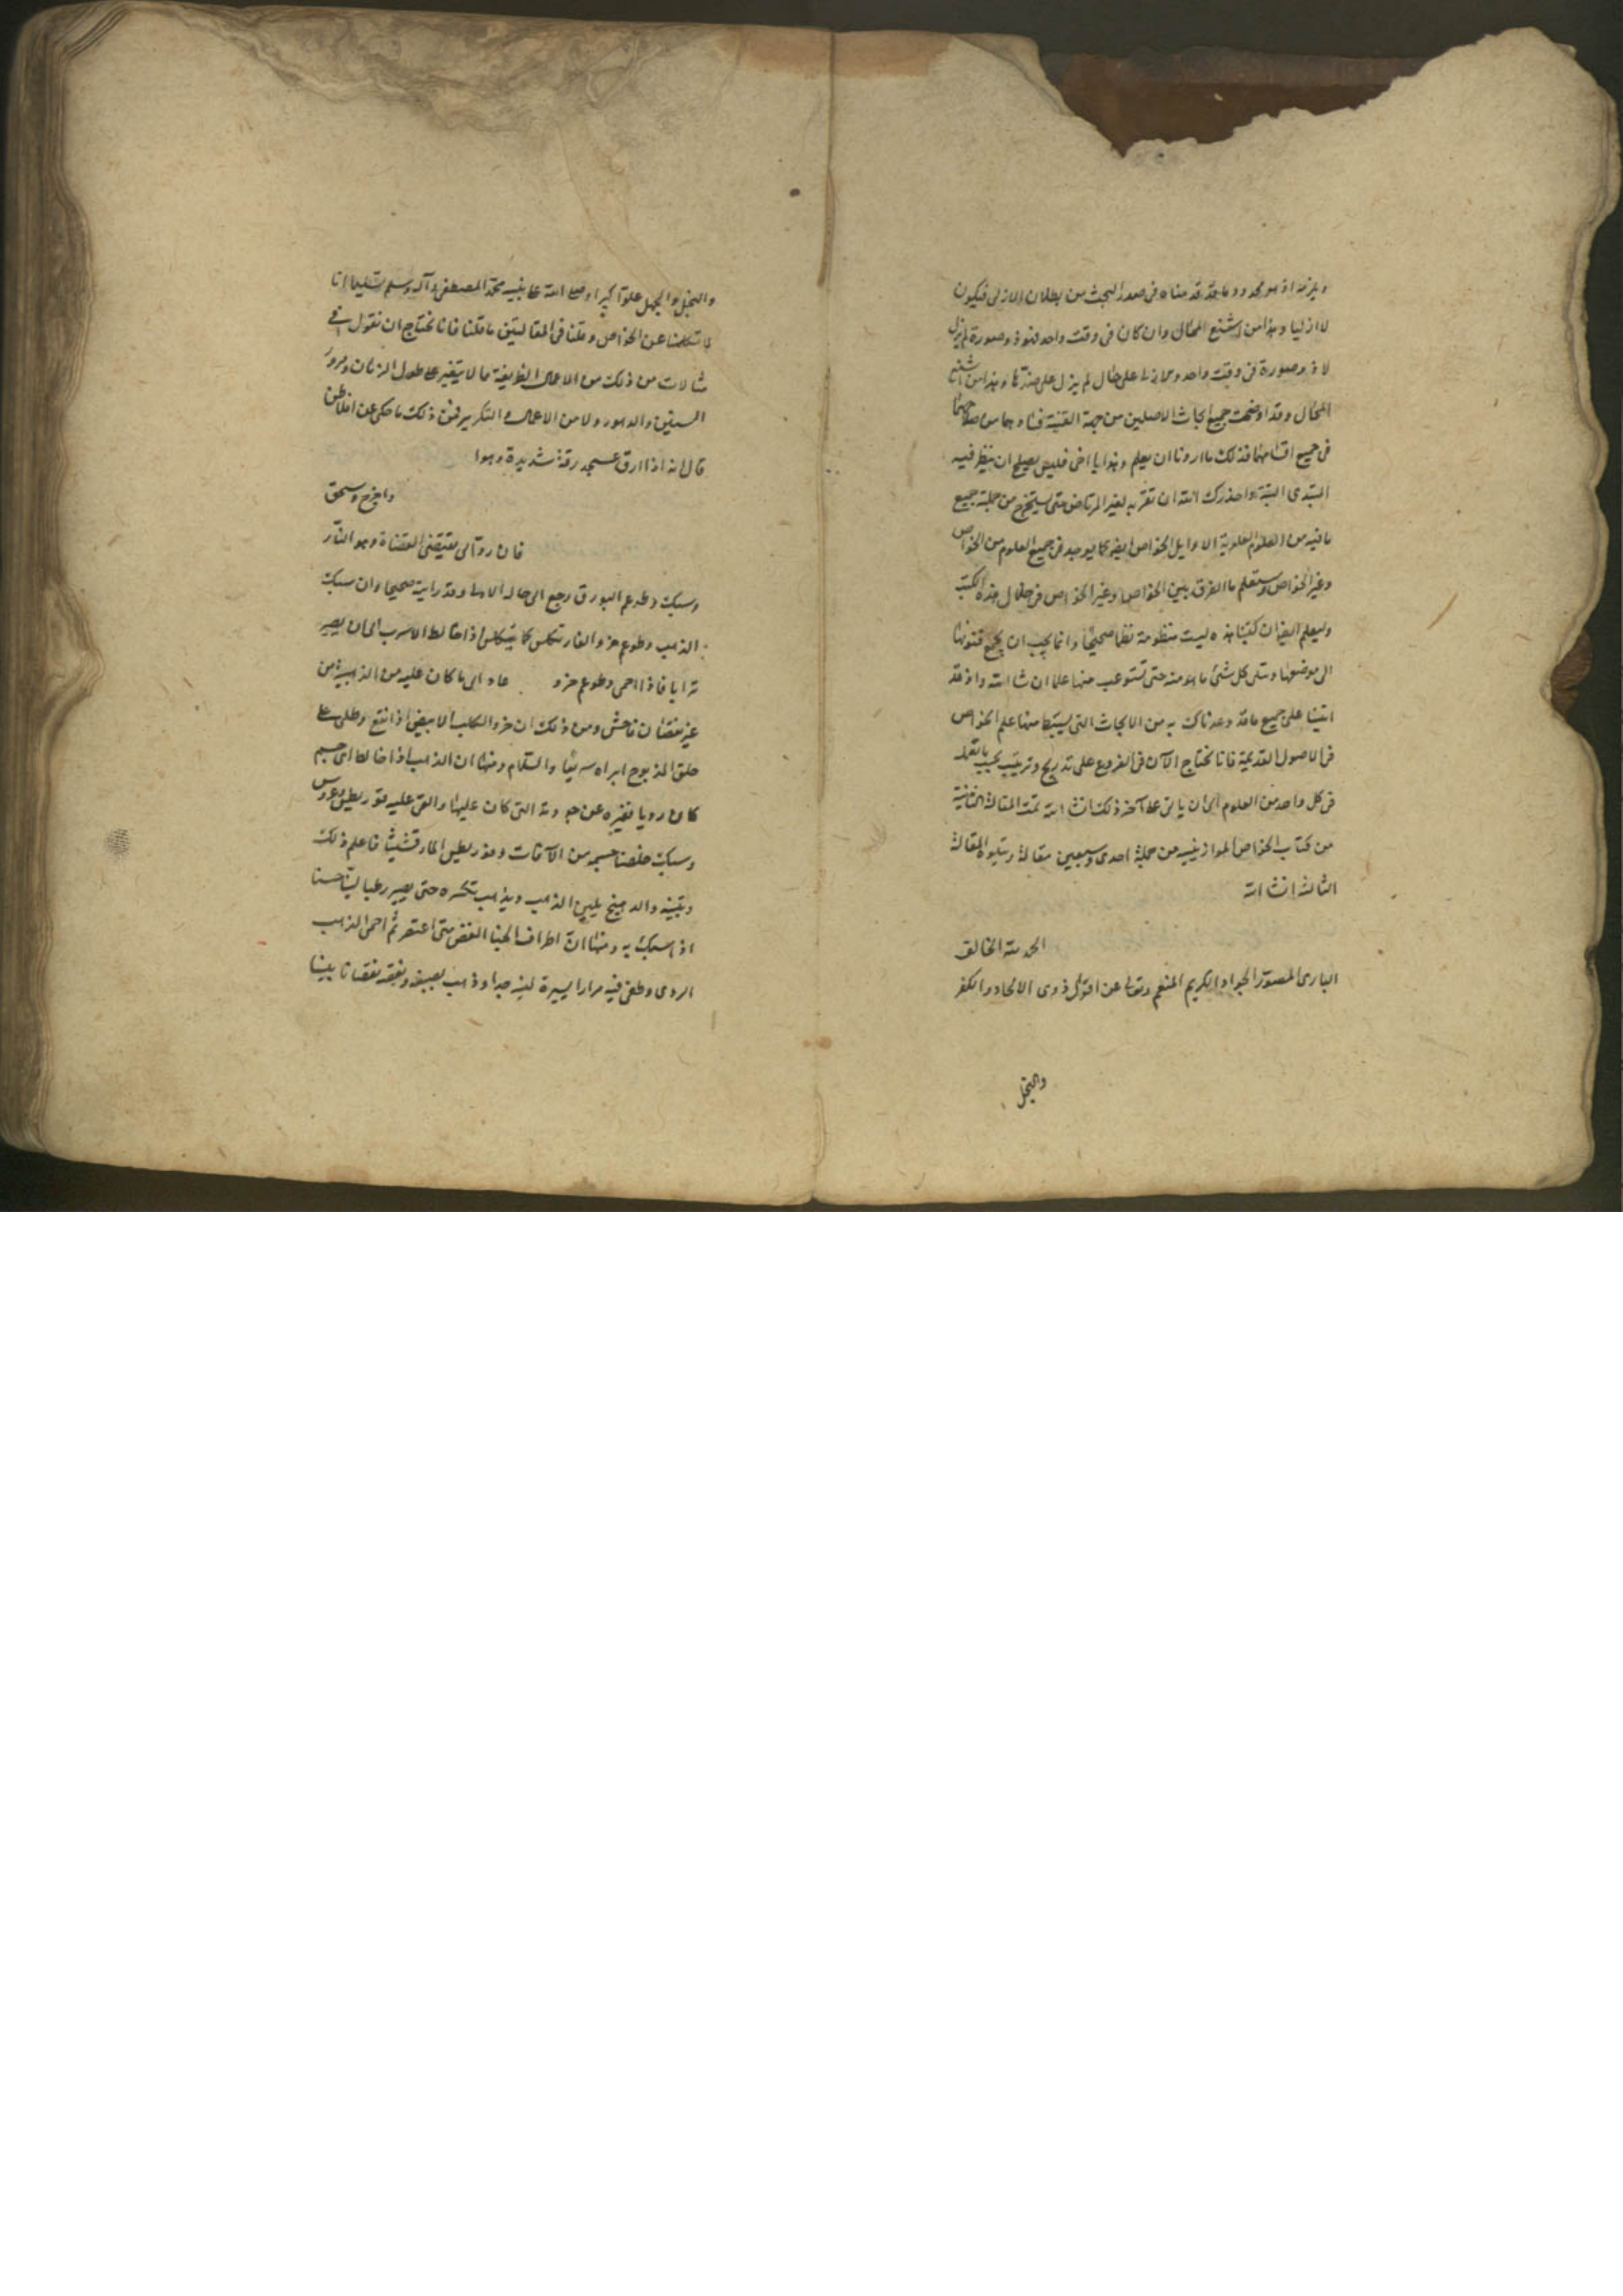 ويلزمه اذ هو محدود ما قد قدمناه فى صدر البحث من بطلان الازلى فيكون
لا ازليا وهذا من اشنع المحال وان كان فى وقت واحد فهو ذو صورة لم يزل
لا ذو صورة فى وقت واحد وعلى حال لم يزل على ضدها وهذا من اشنع
المحال وقد اوضحت جميع ابحاث الاصلين من جهة القنية
فى جميع اقسامها فذلك ما اردنا ان يعلم وهذا يا اخى فليس يصلح ان ينظر فيه
المبتدى البتة واحذرك الله ان تقربه لغير المرتاض حتى يستخرج من جملة جميع
ما فيه من العلوم العلوية الاوايل الخواص ايضا كما يوجد فى جميع العلوم من الخواص
وغير الخواص وستعلم ما الفرق بين الخواص وغير الخواص فى خلال هذه الكتب
وليعلم ايضا ان كتبنا هذه ليست منظومة نظما صحيحا وانما يجب ان يجمع فنونها
الى موضعها وتتلى كل شئ ما هو منه حتى تستوعب منها علما ان شا الله واذ قد
اتينا على جميع ما قد وعدناك به من الابحاث التى يستنبط منها علم الخواص
فى الاصول القديمة فانا نحتاج الآن فى الفروع على تدريج وترتيب
فى كل واحد من العلوم الى ان ياتى على آخر ذلك انشا الله تمت المقالة الثانية
من كتاب الخواص الموازينيه من جملة احدى وسبعين مقالة ويتلوه المقالة
الثالثة انشا الله
الحمد لله الخالق
البارى المصور الجواد الكريم المنعم وتعالى عن اقوال ذوى الالحاد والكفر
والبخل
والبخل والجهل علوا كبيرا وصلى الله على نبيه محمد المصطفى وآله وسلم تسليما انا
لما تكلمنا عن الخواص وقلنا فى المقالتين ما قلنا فانا نحتاج ان نقول فى
مثالات من ذلك من الاعمال الطريفة ما لا يتغير على طول الزمان ومرور
السنين والدهور ولا من الاعمال والتكرير فمن ذلك ما حكى عن افلاطن
قال انه اذا ارق عسجد رقة شديدة وهوا
واخرج وسحق
فان روآلى
وسبك وطوعم البورق رجع الى حاله الاول وقد رايته صحيحا وان سبك
الذهب وطوعم خرو الفار تكلس كما يتكلس اذا خالط الاسرب الى ان يصير
ترابا فاذا احمى وطوعم خرو عاد الى ما كان عليه من الذهبية من
غير نقصان فاحش ومن ذلك ان خرو الكلب الابيض اذا انقع وطلى على
حلق المذبوح ابراه سريعا والسلام ومنها ان الذهب اذا خالط اى جسم
كان رديا فغيره عن جودته التى كان عليها والقى عليه
وسبك خلصنا جسمه من الآفات
وتبينه والدهنج يلين الذهب ويذهب بتكسره حتى يصير رطبا لينا حسنا
اذا سبك به ومنها ان اطراف الحنا الغض متى اعتصر ثم احمى الذهب
الردى وطفى فيه مرارا يسيرة لينه جيدا وذهب بصبغه ونقصه نقصانا بينا